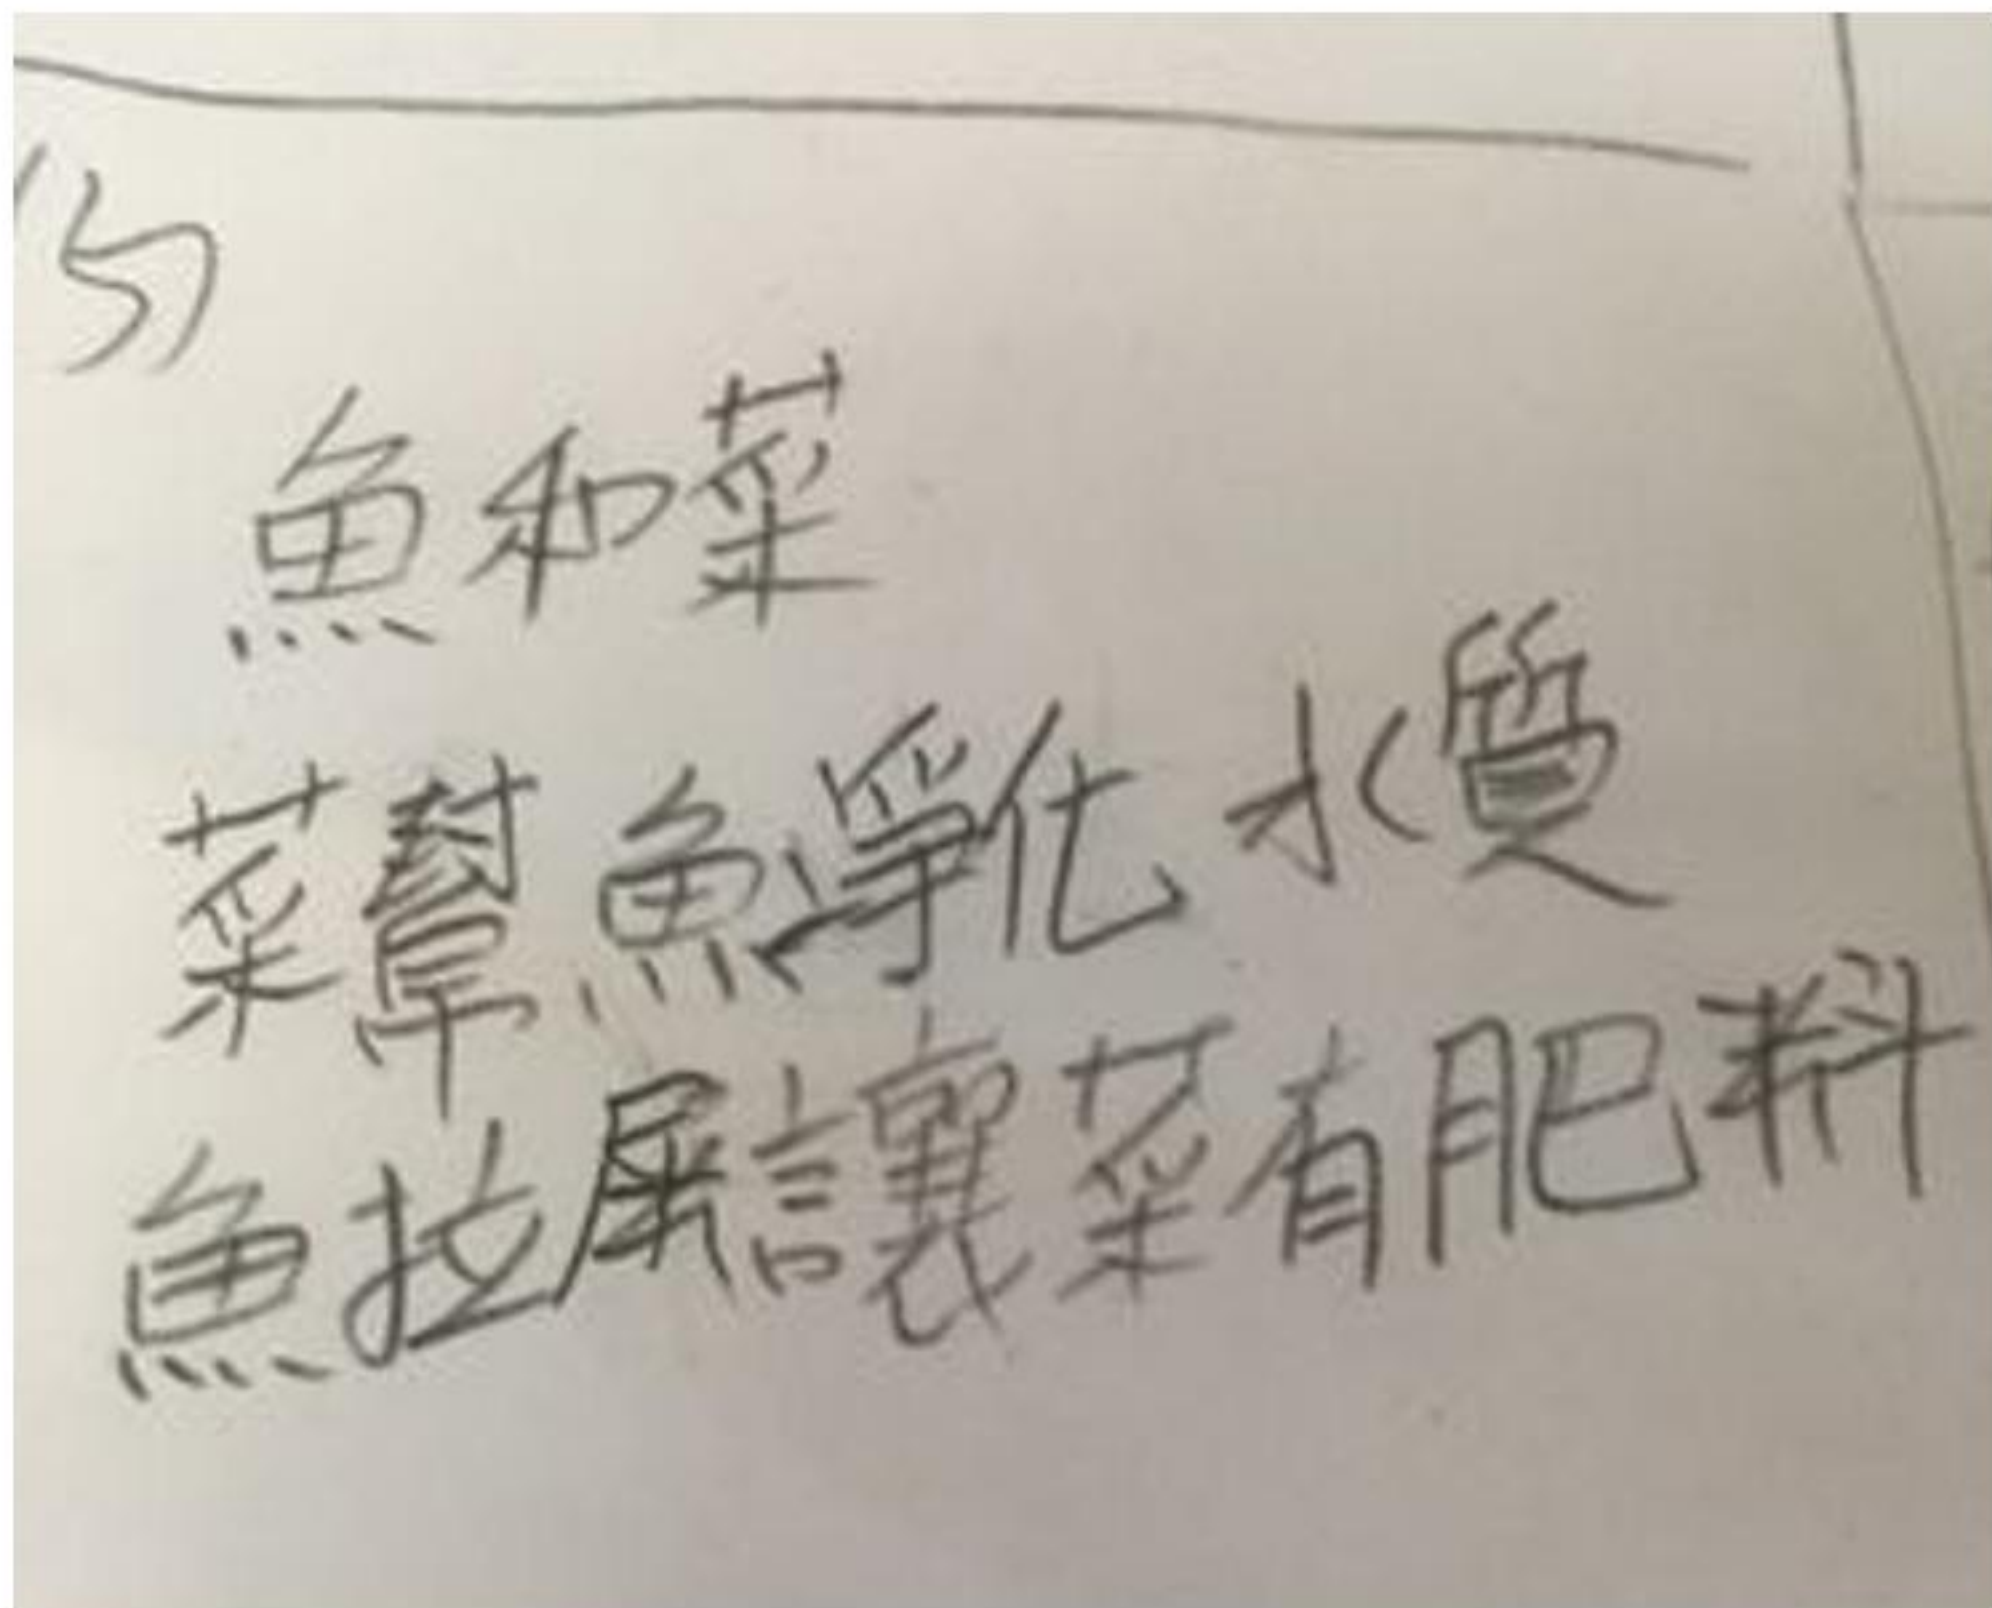 魚和菜
菜幫魚淨化水質
魚拉屎讓菜有肥料